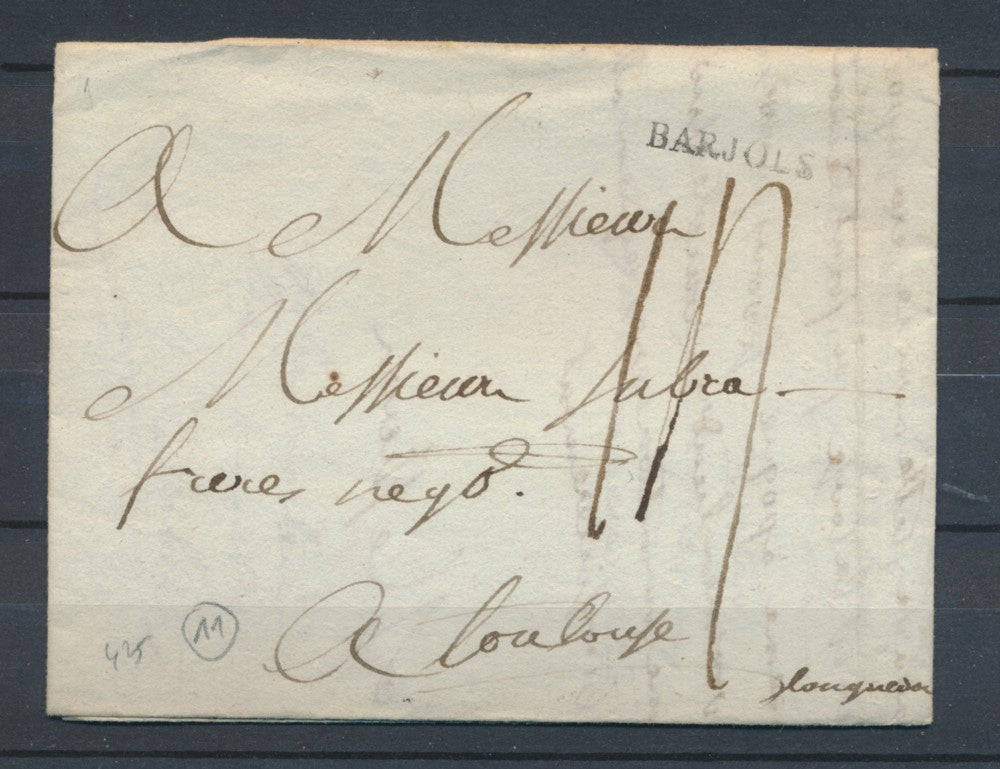 BARJOLS
A Messieurs
Messieurs Subra
freres nego.
A toulouse
longuedoc
425
11